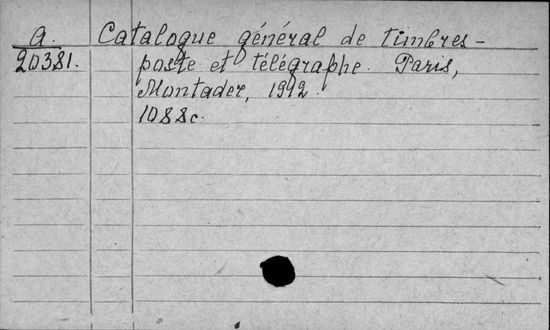 A. Catalogue général de timbres-
20381. poste et télégraphe. Paris,
Montader, 1912.
1088c.